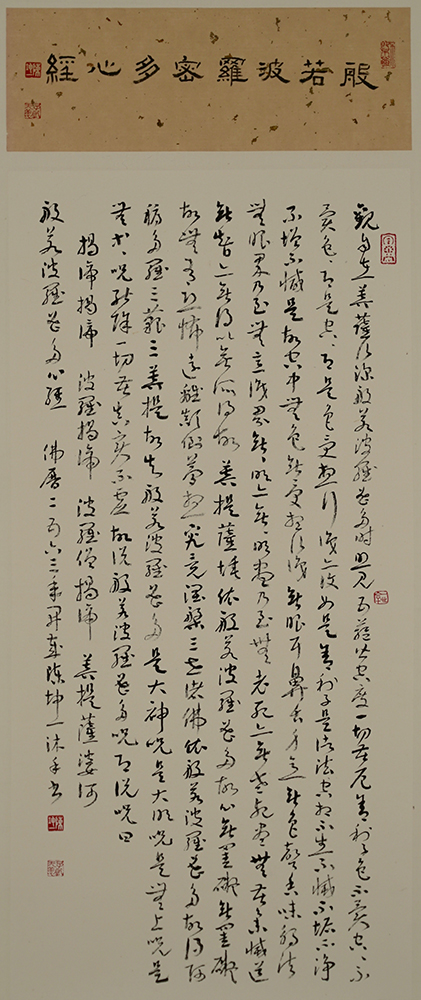 般若波羅密多心經
觀自在菩薩行深般若波羅蜜多時照見五蘊皆空度一切苦厄舍利子色不異空空不
異色色即是空空即是色受想行識亦復如是舍利子是諸法空相不生不滅不垢不淨
不增不減是故空中無色無受想行識無眼耳鼻舌身意無色聲香味觸法
無眼界乃至無意識界無無明亦無無明盡乃至無老死亦無老死盡無苦集滅道
無智亦無得以無所得故菩提薩埵依般若波羅蜜多故心無罣礙無罣礙
故無有恐怖遠離顛倒夢想究竟涅槃三世諸佛依般若波羅蜜多故得阿
耨多羅三藐三菩提故知般若波羅蜜多是大神咒是大明咒是無上咒是
無等等咒能除一切苦真實不虛故說般若波羅蜜多咒即說咒曰
揭諦揭諦 波羅揭諦 波羅僧揭諦 菩提薩婆訶
般若波羅蜜多心經 佛曆二五六三年 陳坤一沐手書